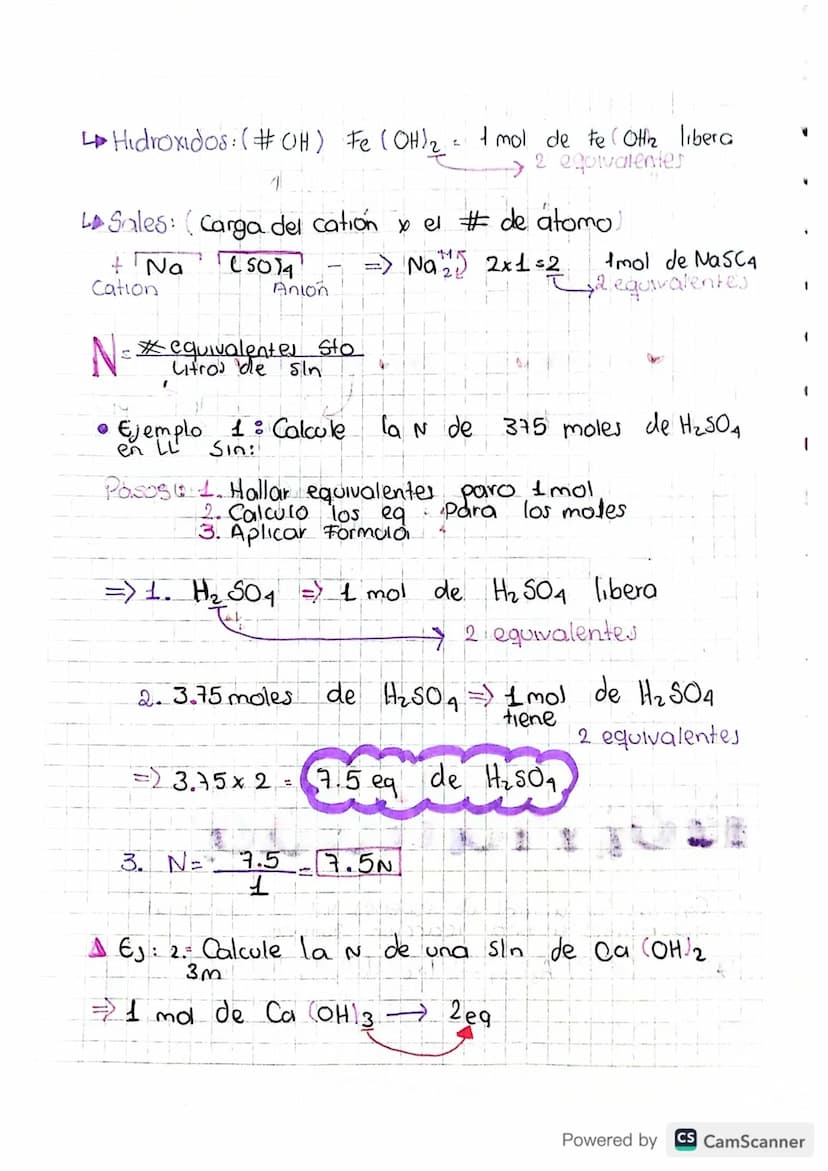 ↳ Hidroxidos: (# OH) Fe (OH)₂ = 1 mol de Fe (OH)₂ libera
2 equivalentes
↳ Sales: (Carga del catión x el # de átomo)
+ Na (SO)4 - => Na₂⁺¹ 2x1=2 1mol de NaSC4
Cation Anion 2 equivalentes
N = # equivalentes sto
Litros de sln
• Ejemplo 1: Calcule la N de 375 moles de H₂SO₄
en LL Sln:
Pasos: 1. Hallar equivalentes para 1mol
2. Calculo los eq para los moles
3. Aplicar Formula
=> 1. H₂SO₄ => 1 mol de H₂SO₄ libera
2 equivalentes
2. 3.75 moles de H₂SO₄ => 1 mol de H₂SO₄
tiene
2 equivalentes
=> 3.75 x 2 = 7.5 eq de H₂SO₄
3. N = 7.5 = 7.5N
1
Ej: 2.- Calcule la N de una sln de Ca (OH)₂
3m
=> 1 mol de Ca (OH)3 → 2eq
Powered by CS CamScanner